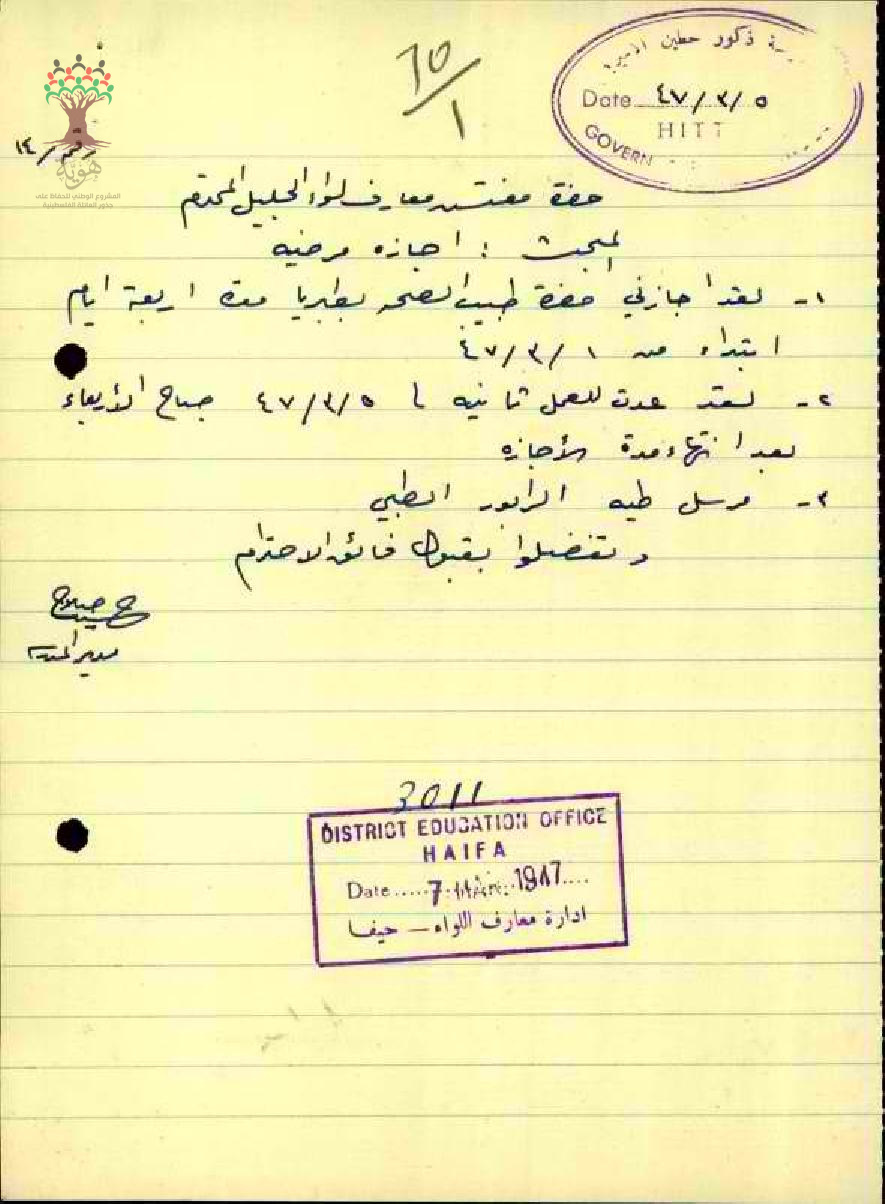 10/1
ة ذكور حطين الاميرية
Date ٤٧/٣/٥
HITT
GOVERN
رقم/١٤
هوية
المشروع الوطني للحفاظ على
جذور العائلة الفلسطينية
حضرة مفتش معارف لواء الجليل المحترم
المبحث : اجازه مرضيه
١- لقد اجازني حضرة طبيب الصحه بطبريا مدة اربعة ايام
ابتداء من ٤٧/٣/١
٢- لقد عدت للعمل ثانيه في ٤٧/٣/٥ صباح الأربعاء
بعد انتهاء مدة الأجازه
٣- مرسل طيه الرابور الطبي
وتفضلوا بقبول فائق الاحترام
صلاح
مدير المدرسة
3011
DISTRICT EDUCATION OFFICE
HAIFA
Date.....7 MAR. 1947....
ادارة معارف اللواء — حيفا